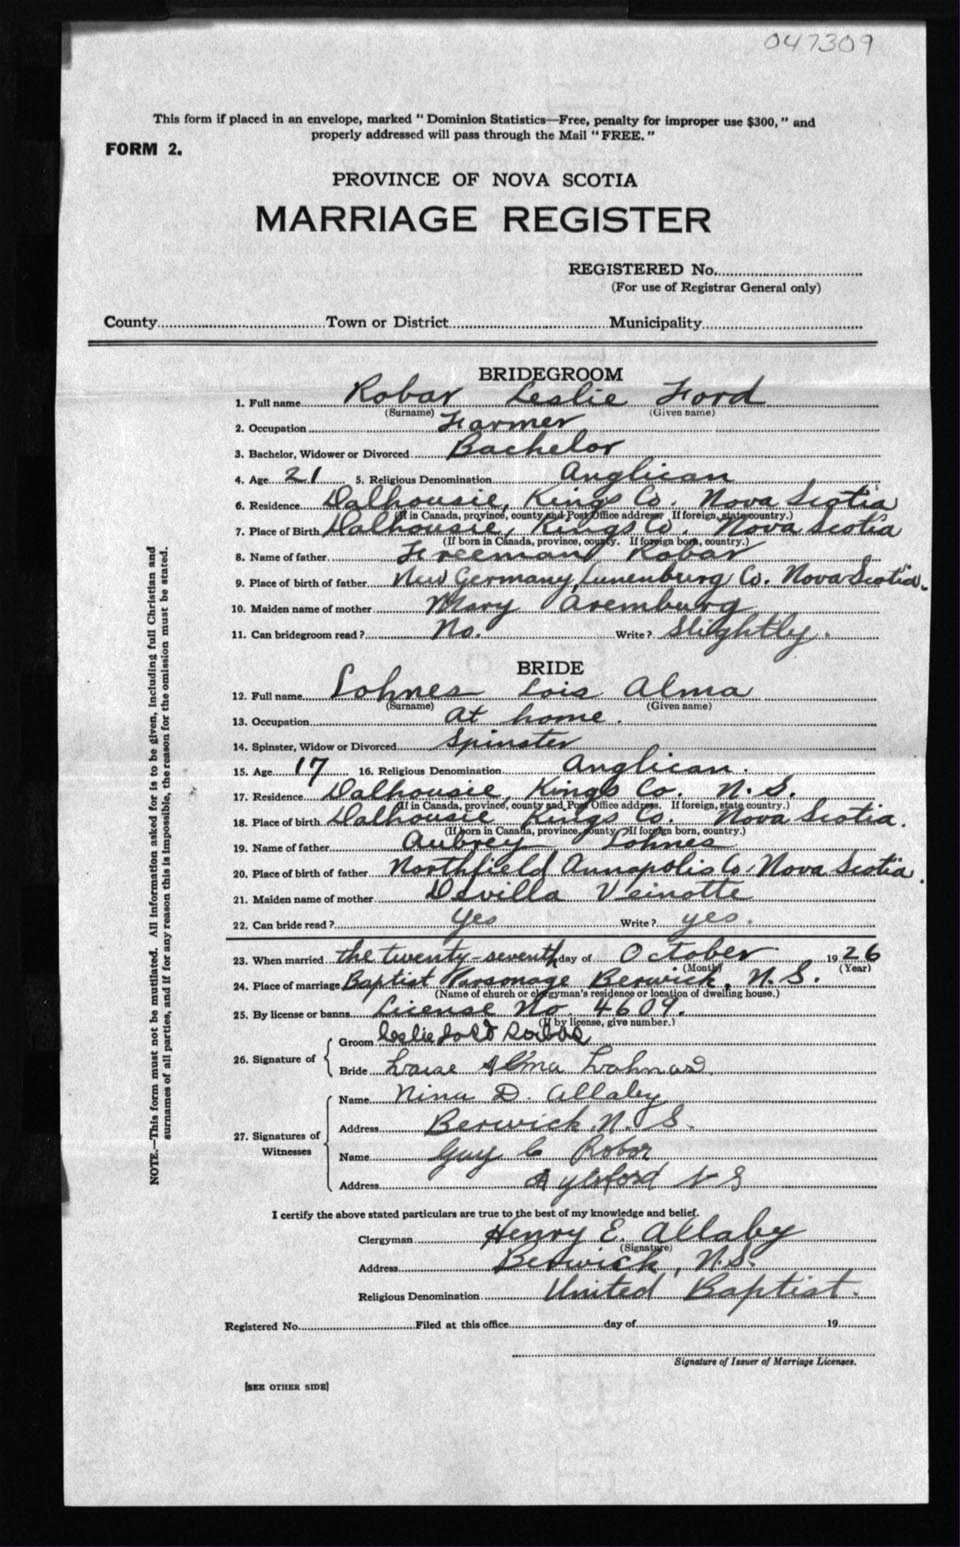 047309
This form if placed in an envelope, marked "Dominion Statistics—Free, penalty for improper use $300," and
properly addressed will pass through the Mail "FREE."
FORM 2.
PROVINCE OF NOVA SCOTIA
MARRIAGE REGISTER
REGISTERED No.
(For use of Registrar General only)
County Town or District Municipality
BRIDEGROOM
1. Full name Robar Leslie Ford
(Surname) (Given name)
2. Occupation Farmer
3. Bachelor, Widower or Divorced Bachelor
4. Age 21 5. Religious Denomination Anglican
6. Residence Dalhousie, Kings Co. Nova Scotia
(If in Canada, province, county and Post Office address. If foreign, state country.)
7. Place of Birth Dalhousie, Kings Co Nova Scotia
(If born in Canada, province, county. If foreign born, country.)
8. Name of father Freeman Robar
9. Place of birth of father New Germany, Lunenburg Co. Nova Scotia.
10. Maiden name of mother Mary Aremburg
11. Can bridegroom read? No. Write? Slightly.
BRIDE
12. Full name Lohnes Lois Alma
(Surname) (Given name)
13. Occupation At home.
14. Spinster, Widow or Divorced Spinster
15. Age 17 16. Religious Denomination Anglican.
17. Residence Dalhousie, Kings Co. N.S.
(If in Canada, province, county and Post Office address. If foreign, state country.)
18. Place of birth Dalhousie Kings Co. Nova Scotia.
(If born in Canada, province, county. If foreign born, country.)
19. Name of father Aubrey Lohnes
20. Place of birth of father Northfield Annapolis Co. Nova Scotia.
21. Maiden name of mother Devilla Veinotte
22. Can bride read? Yes Write? yes.
23. When married the twenty-seventh day of October 1926
(Month) (Year)
24. Place of marriage Baptist Parsonage Berwick, N.S.
(Name of church or clergyman's residence or location of dwelling house.)
25. By license or banns License No. 4609.
(If by license, give number.)
26. Signature of
Groom Leslie Ford Robar
Bride Alma
27. Signatures of Witnesses
Name Nina D. Allaby
Address Berwick, N. S.
Name Guy C Robar
Address Aylsford N S
I certify the above stated particulars are true to the best of my knowledge and belief.
Clergyman Henry E. Allaby
(Signature)
Address Berwick, N.S.
Religious Denomination United Baptist.
Registered No. Filed at this office day of 19
Signature of Issuer of Marriage Licenses.
[SEE OTHER SIDE]
NOTE.—This form must not be mutilated. All information asked for is to be given, including full Christian and
surnames of all parties, and if for any reason this is impossible, the reason for the omission must be stated.